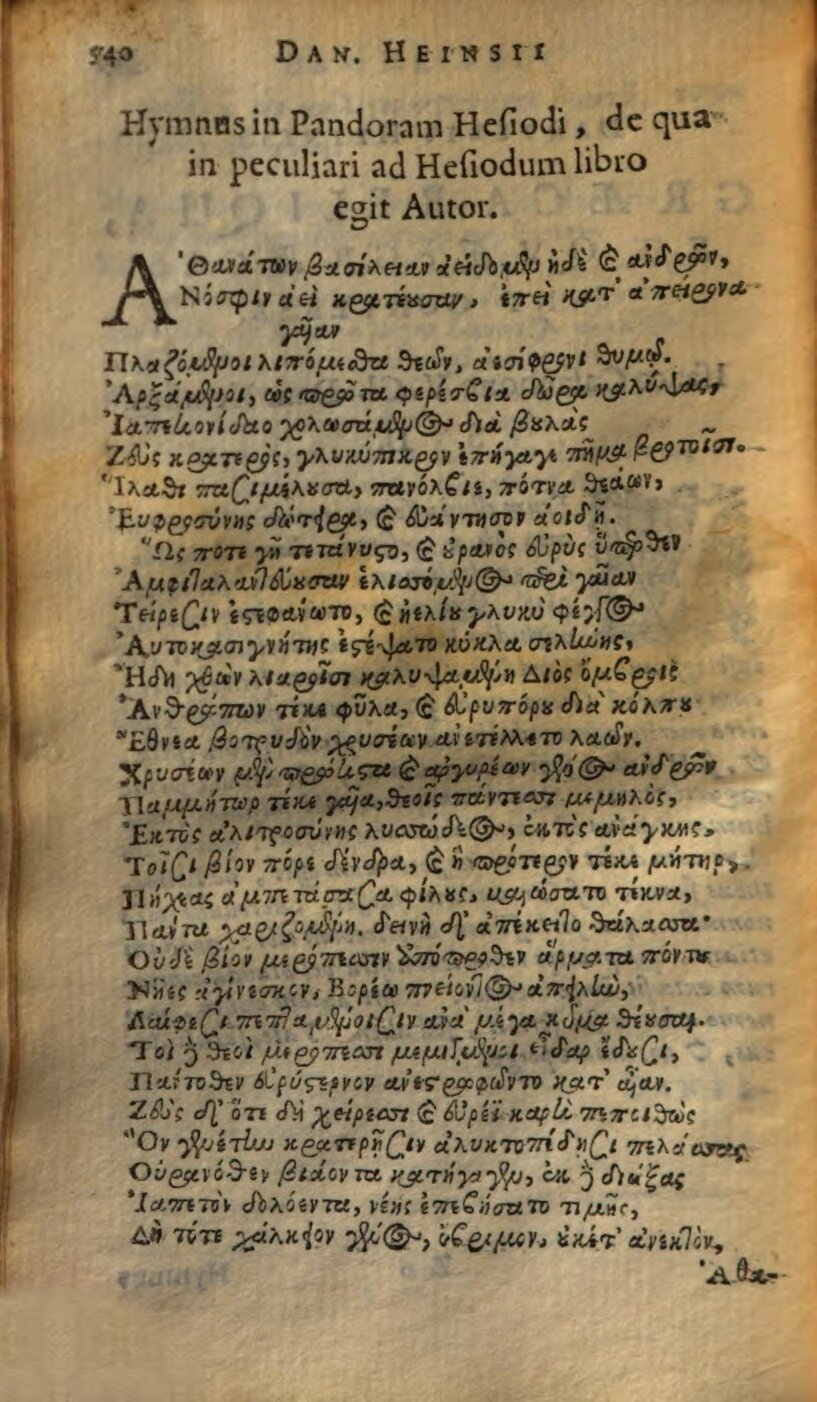 540 DAN. HEINSII
Hymnus in Pandoram Hesiodi, de qua
in peculiari ad Hesiodum libro
egit Autor.
Ἀθανάτων βασίλειαν ἀείδομεν ἠδὲ καὶ ἀνδρῶν,
Νόσφιν ἀεὶ κρατέουσαν, ἐπεὶ κατ' ἀπείρονα
γαῖαν
Πλαζόμενοι λιπόμεσθα θεῶν, ἀεσίφρονι θυμῷ.
Ἀρξάμενοι, ὡς πρῶτα φερέσβια δῶρα καλύψας,
Ἰαπετιονίδαο χολωσάμενος διὰ βουλὰς
Ζεὺς κρατερὸς, γλυκύπικρον ἐπήγαγε πῆμα βροτοῖσι.
Ἵλαθι πασιμέλουσα, πανόλβιε, πότνα θεάων,
Ἐυφροσύνης δώτειρα, καὶ εὐάντησον ἀοιδῇ.
Ὥς ποτε γῆ τετάνυστο, καὶ οὐρανὸς εὐρὺς ὕπερθεν
Ἀμφιταλαντεύουσαν ἑλισσόμενος περὶ γαῖαν
Τείρεσιν ἐστεφάνωτο, καὶ ἠελίου γλυκὺ φέγγος
Ἀυτοκασιγνήτης ἐστέψατο κύκλα σελήνης,
Ἤδη χθὼν λιαροῖσι καλυψαμένη Διὸς ὄμβροις
Ἀνθρώπων τέκε φῦλα, καὶ εὐρυπόρου διὰ κόλπου
Ἔθνεα βοτρυδὸν χρυσέων ἀνετέλλετο λαῶν.
Χρυσέων μὲν πρώτιστα καὶ ἀργυρέων γένος ἀνδρῶν
Παμμήτωρ τέκε γαῖα, θεοῖς πάντεσσι μεμηλὸς,
Ἐκτὸς ἀλιτροσύνης λυσσώδεος, ἐκτὸς ἀνάγκης.
Τοῖσι βίον πόρε δένδρα, καὶ ἣ πρότερον τέκε μήτηρ,
Πήχεας ἀμπετάσασα φίλους, κομώσατο τέκνα,
Πάντα χαριζομένη. δεινὴ δ' ἀπέκειτο θάλασσα·
Οὐδὲ βίον μερόπεσσιν ἀπόπροθεν ἅρματα πόντου
Νῆες ἀγίνεσκον, Βορέω πνείοντος ἀπήλιω,
Λαίφεσι πεπταμένοισιν ἀνὰ μέγα κῦμα θέουσαι.
Τοὶ δὲ θεοὶ μερόπεσσι μεμιγμένοι εἶδαρ ἔδουσι,
Πάντοθεν εὐρύστερνον ἀνεστρωφῶντο κατ' αἶαν.
Ζεὺς δ' ὅτε δὴ χείρεσσι καὶ εὐρέϊ κάρτεϊ πεποιθὼς
Ὃν γενέτην κρατερῇσιν ἀλυκτοπέδῃσι πελάσσας
Οὐρανόθεν βιάοντα κατήγαγεν, ἐκ δὲ διώξας
Ἰαπετὸν δολόεντα, νέης ἐπεβήσατο τιμῆς,
Δὴ τότε χάλκειον γένος, ὄβριμον, οὐκέτ' ἀνεκτὸν,
Ἀθα-